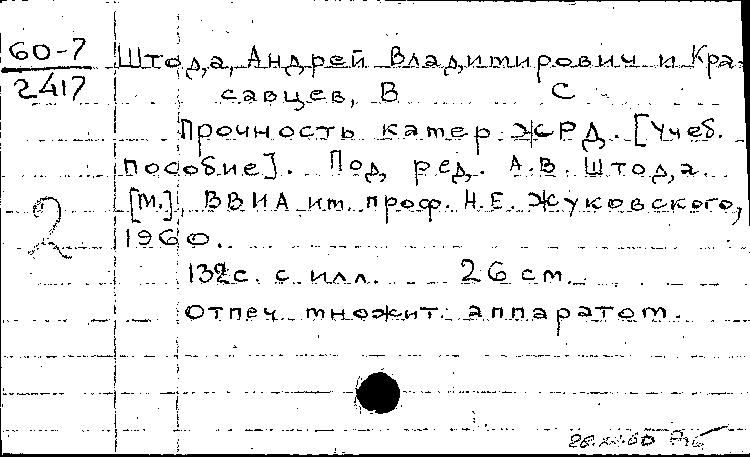 60-7
2417
Штода, Андрей Владимирович и Кра-
савцев, В С
Прочность камер ЖРД. [Учеб.
пособие]. Под ред. А.В. Штода.
[М.], ВВИА им. проф. Н.Е. Жуковского,
1960.
132с. с илл. 26 см.
Отпеч. множит. аппаратом.
2